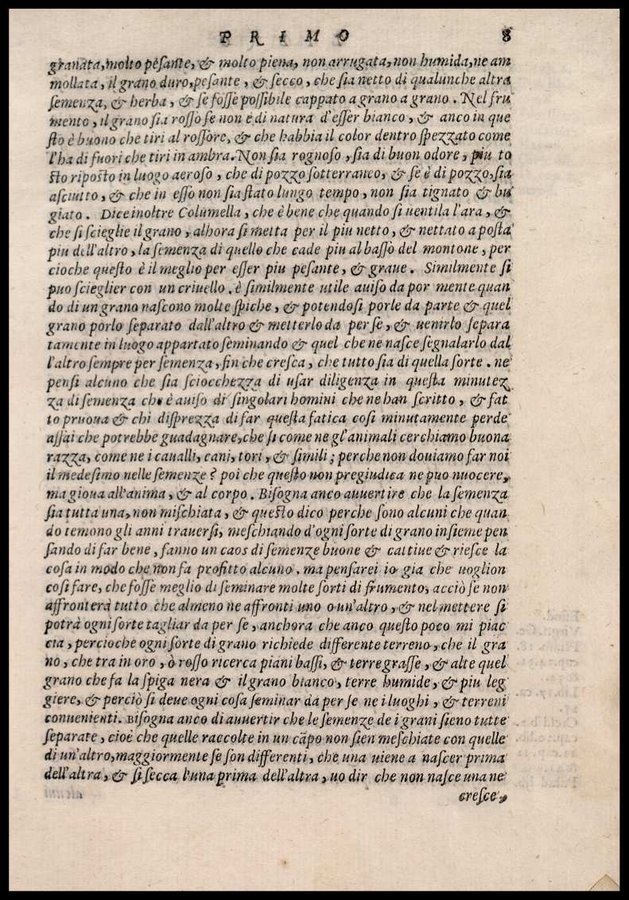 PRIMO 8
granata, molto pesante, & molto piena, non arrugata, non humida, ne am
mollata, il grano duro, pesante, & secco, che sia netto di qualunche altra
semenza, & herba, & se fosse possibile cappato a grano a grano. Nel fru
mento, il grano sia rosso se non è di natura d'esser bianco, & anco in que
sto è buono che tiri al rossore, & che habbia il color dentro spezzato come
l'ha di fuori che tiri in ambra. Non sia rognoso, sia di buon odore, piu to
sto riposto in luogo aeroso, che di pozzo sotterraneo, & se è di pozzo, sia
asciutto, & che in esso non sia stato lungo tempo, non sia tignato & bu
giato. Dice inoltre Columella, che è bene che quando si uentila l'ara, &
che si scieglie il grano, alhora si metta per il piu netto, & nettato a posta
piu dell'altro, la semenza di quello che cade piu al basso del montone, per
cioche questo è il meglio per esser piu pesante, & graue. Similmente si
puo scieglier con un criuello. è similmente utile auiso da por mente quan
do di un grano nascono molte spiche, & potendosi porle da parte & quel
grano porlo separato dall'altro & metterlo da per se, & uenirlo separa
tamente in luogo appartato seminando & quel che ne nasce segnalarlo dal
l'altro sempre per semenza, fin che cresca, che tutto sia di quella sorte. ne
pensi alcuno che sia sciocchezza di usar diligenza in questa minutez
za di semenza che è auiso di singolari homini che ne han scritto, & fat
to pruoua & chi disprezza di far questa fatica cosi minutamente perde
assai che potrebbe guadagnare, che si come ne gl'animali cerchiamo buona
razza, come ne i caualli, cani, tori, & simili; perche non douiamo far noi
il medesimo nelle semenze? poi che questo non pregiudica ne puo nuocere,
ma gioua all'anima, & al corpo. Bisogna anco auuertire che la semenza
sia tutta una, non mischiata, & questo dico perche sono alcuni che quan
do temono gli anni trauersi, meschiando d'ogni sorte di grano insieme pen
sando di far bene, fanno un caos di semenze buone & cattiue & riesce la
cosa in modo che non fa profitto alcuno. ma pensarei io gia che uoglion
cosi fare, che fosse meglio di seminare molte sorti di frumento, acciò se non
affronterà tutto che almeno ne affronti uno o un'altro, & nel mettere si
potrà ogni sorte tagliar da per se, anchora che anco questo poco mi piac
cia, percioche ogni sorte di grano richiede differente terreno, che il gra
no, che tra in oro, ò rosso ricerca piani bassi, & terre grasse, & alte quel
grano che fa la spiga nera & il grano bianco, terre humide, & piu leg
giere, & perciò si deue ogni cosa seminar da per se ne i luoghi, & terreni
conuenienti. Bisogna anco di auuertir che le semenze de i grani sieno tutte
separate, cioè che quelle raccolte in un cãpo non sien meschiate con quelle
di un'altro, maggiormente se son differenti, che una uiene a nascer prima
dell'altra, & si secca l'una prima dell'altra, uo dir che non nasce una ne
cresce,